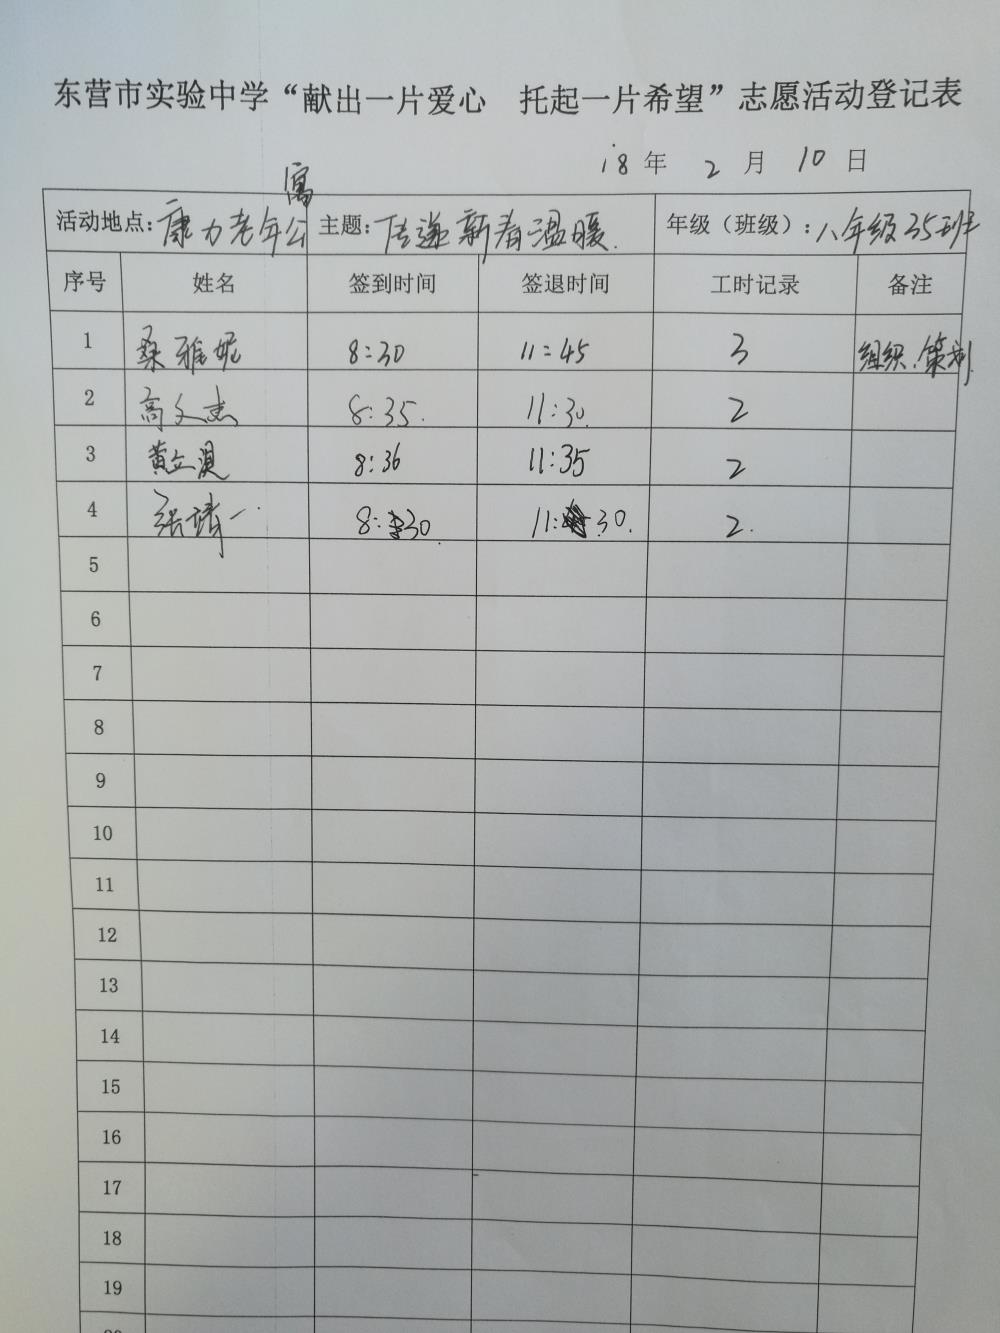 东营市实验中学“献出一片爱心 托起一片希望”志愿活动登记表
18 年 2 月 10 日
活动地点：康力老年公寓 主题：传递新春温暖. 年级（班级）：八年级35班
序号 姓名 签到时间 签退时间 工时记录 备注
1 桑雅妮 8:30 11:45 3 组织.策划
2 高文志 8:35. 11:30. 2
3 黄立 8:36 11:35 2
4 张靖一. 8:30. 11:30. 2.
5
6
7
8
9
10
11
12
13
14
15
16
17
18
19